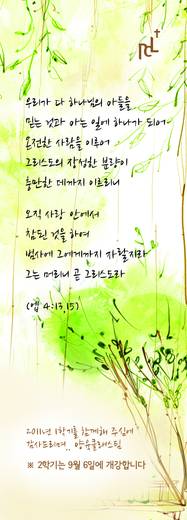 우리가 다 하나님의 아들을
믿는 것과 아는 일에 하나가 되어
온전한 사람을 이루어
그리스도의 장성한 분량이
충만한 데까지 이르리니
오직 사랑 안에서
참된 것을 하여
범사에 그에게까지 자랄지라
그는 머리니 곧 그리스도라
(엡 4:13,15)
2011년 1학기를 함께해 주심에
감사드리며..
※ 2학기는 9월 6일에 개강합니다